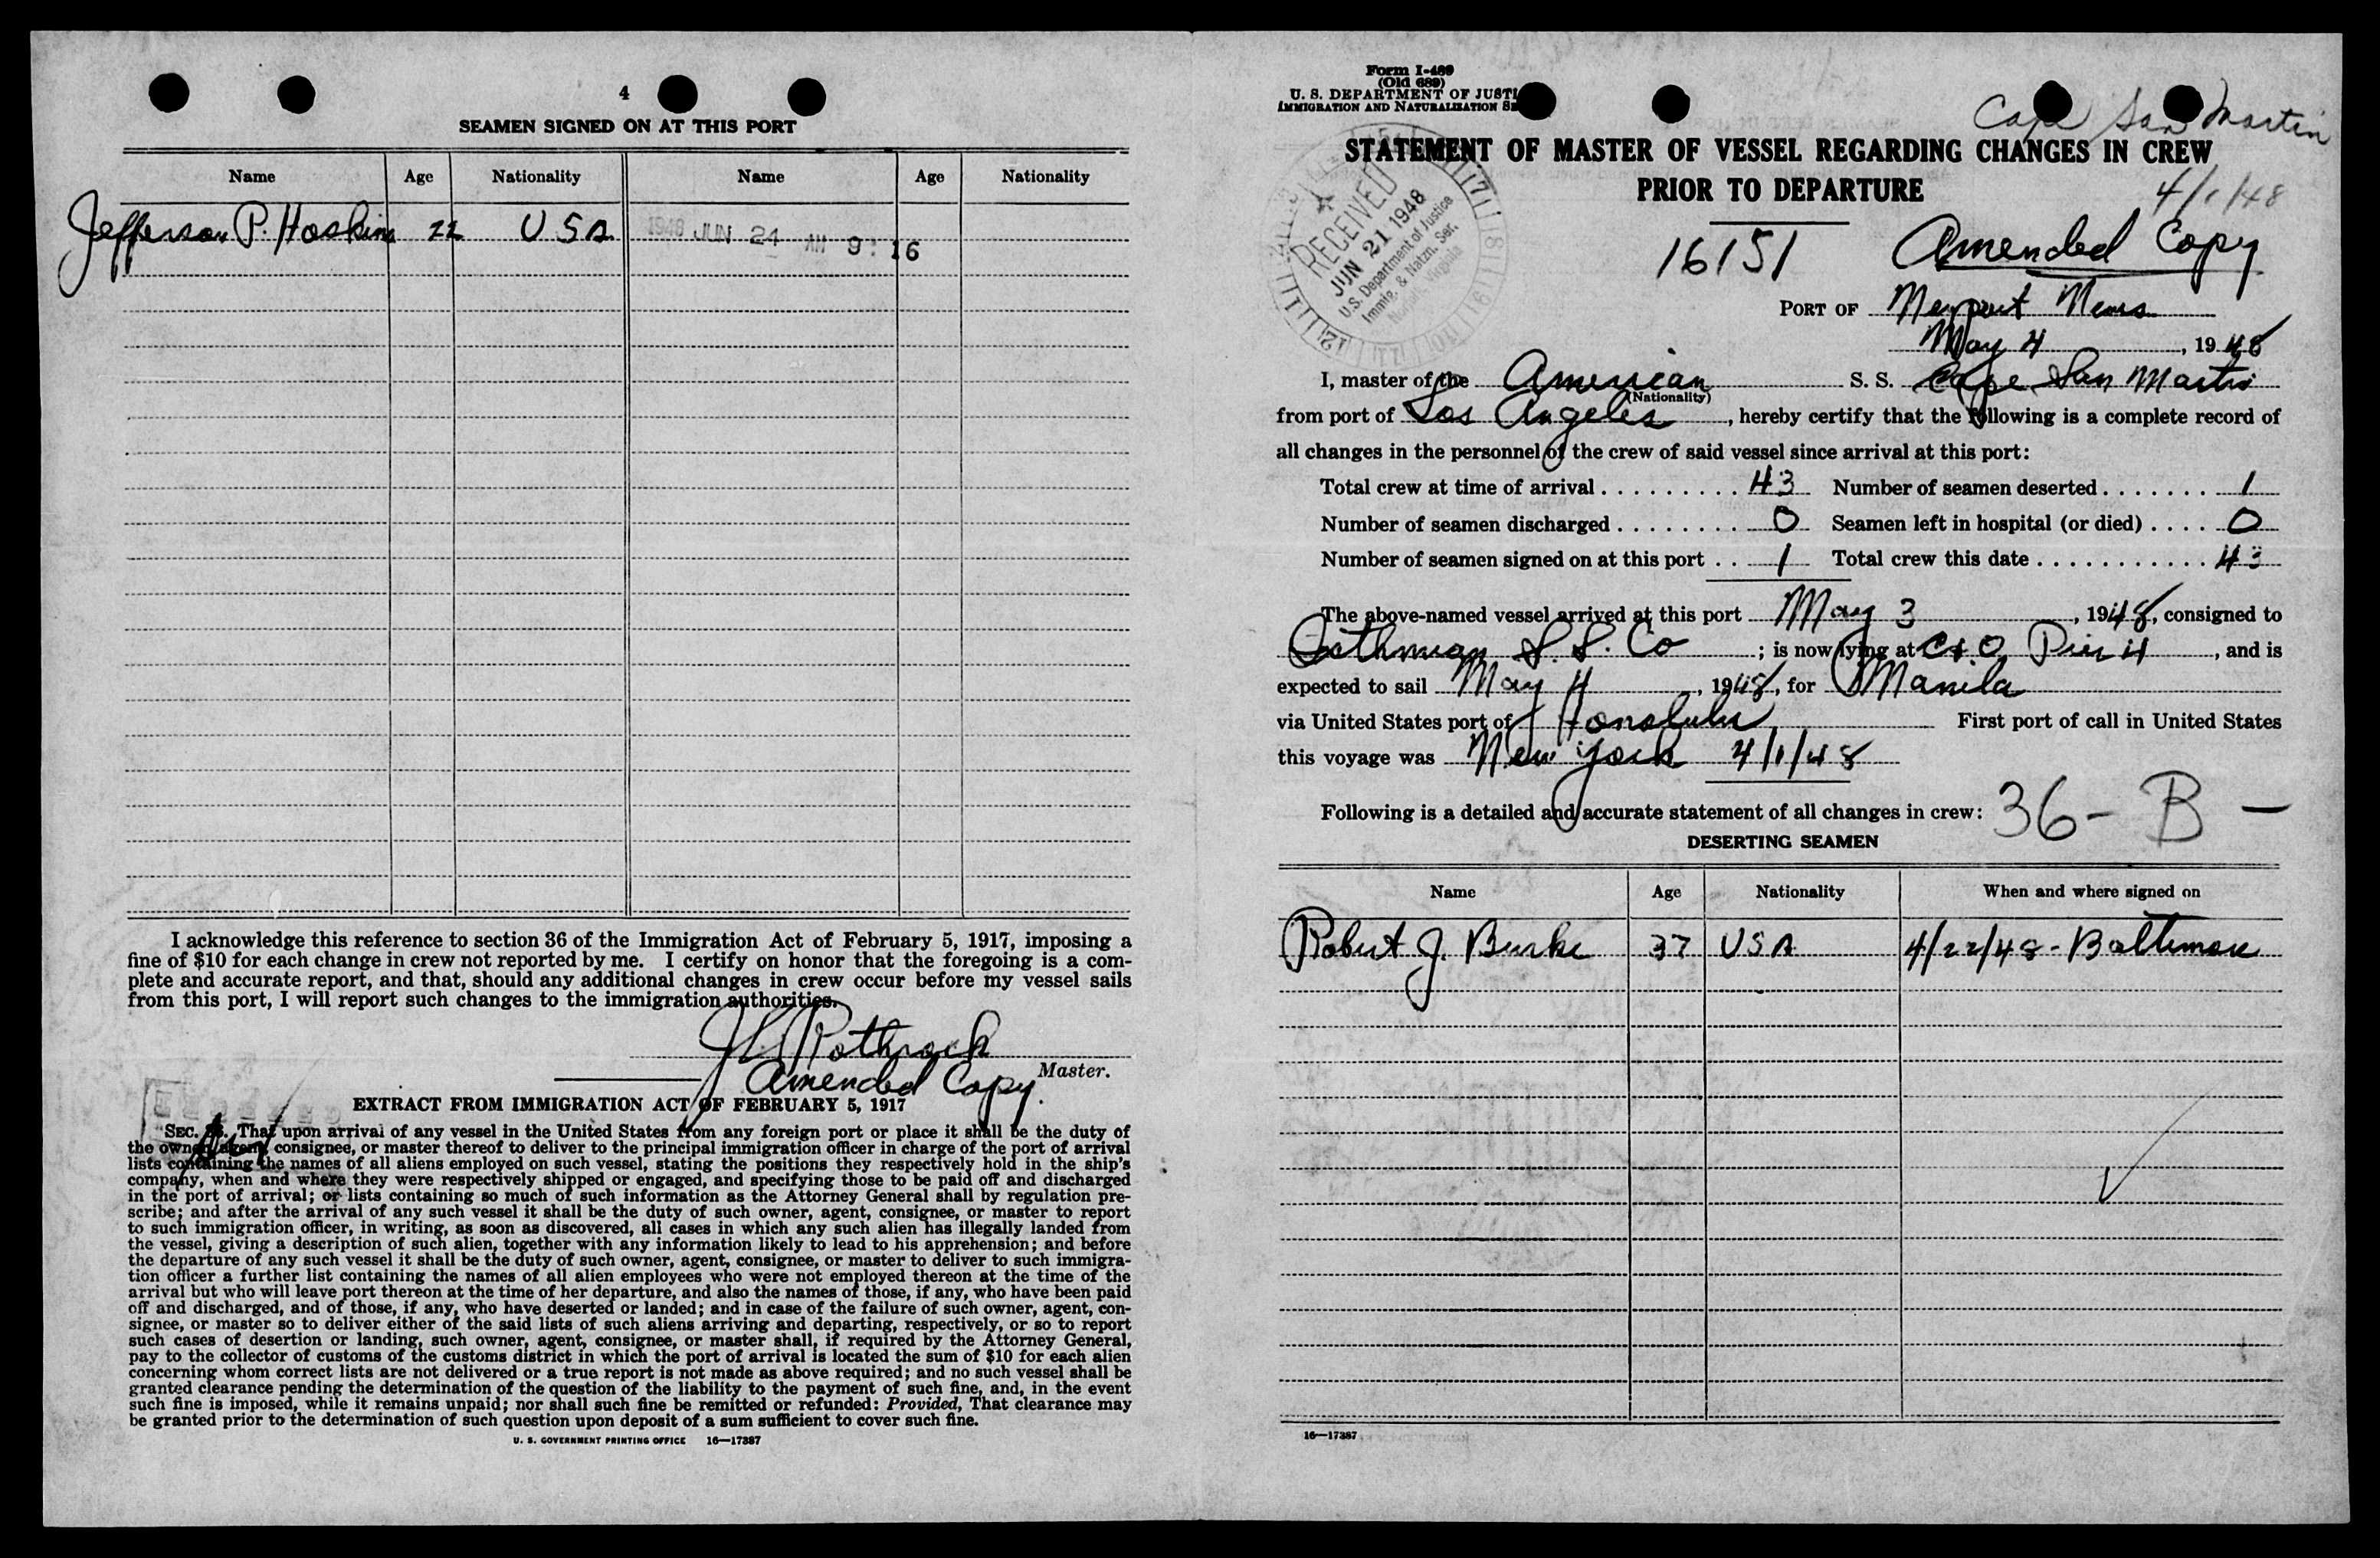 4
SEAMEN SIGNED ON AT THIS PORT
Name Age Nationality Name Age Nationality
Jefferson P. Hoskins 22 USA 1948 JUN 24 AM 9:16
I acknowledge this reference to section 36 of the Immigration Act of February 5, 1917, imposing a
fine of $10 for each change in crew not reported by me. I certify on honor that the foregoing is a com-
plete and accurate report, and that, should any additional changes in crew occur before my vessel sails
from this port, I will report such changes to the immigration authorities.
Rothrock
Master.
Amended Copy.
EXTRACT FROM IMMIGRATION ACT OF FEBRUARY 5, 1917
SEC. That upon arrival of any vessel in the United States from any foreign port or place it shall be the duty of
the owner, agent, consignee, or master thereof to deliver to the principal immigration officer in charge of the port of arrival
lists containing the names of all aliens employed on such vessel, stating the positions they respectively hold in the ship's
company, when and where they were respectively shipped or engaged, and specifying those to be paid off and discharged
in the port of arrival; or lists containing so much of such information as the Attorney General shall by regulation pre-
scribe; and after the arrival of any such vessel it shall be the duty of such owner, agent, consignee, or master to report
to such immigration officer, in writing, as soon as discovered, all cases in which any such alien has illegally landed from
the vessel, giving a description of such alien, together with any information likely to lead to his apprehension; and before
the departure of any such vessel it shall be the duty of such owner, agent, consignee, or master to deliver to such immigra-
tion officer a further list containing the names of all alien employees who were not employed thereon at the time of the
arrival but who will leave port thereon at the time of her departure, and also the names of those, if any, who have been paid
off and discharged, and of those, if any, who have deserted or landed; and in case of the failure of such owner, agent, con-
signee, or master so to deliver either of the said lists of such aliens arriving and departing, respectively, or so to report
such cases of desertion or landing, such owner, agent, consignee, or master shall, if required by the Attorney General,
pay to the collector of customs of the customs district in which the port of arrival is located the sum of $10 for each alien
concerning whom correct lists are not delivered or a true report is not made as above required; and no such vessel shall be
granted clearance pending the determination of the question of the liability to the payment of such fine, and, in the event
such fine is imposed, while it remains unpaid; nor shall such fine be remitted or refunded: Provided, That clearance may
be granted prior to the determination of such question upon deposit of a sum sufficient to cover such fine.
U. S. GOVERNMENT PRINTING OFFICE 16—17387
Form I-489
(Old 689)
U. S. DEPARTMENT OF JUSTI
IMMIGRATION AND NATURALIZATION SE
Cape San Martin
STATEMENT OF MASTER OF VESSEL REGARDING CHANGES IN CREW
PRIOR TO DEPARTURE
4/1/48
RECEIVED
JUN 21 1948
U.S. Department of Justice
Immig. & Natzn. Ser.
Norfolk, Virginia
16151 Amended Copy
PORT OF Newport News
May 4, 1948
I, master of the American S. S. Cape San Martin
(Nationality)
from port of Los Angeles, hereby certify that the following is a complete record of
all changes in the personnel of the crew of said vessel since arrival at this port:
Total crew at time of arrival 43 Number of seamen deserted 1
Number of seamen discharged 0 Seamen left in hospital (or died) 0
Number of seamen signed on at this port 1 Total crew this date 43
The above-named vessel arrived at this port May 3, 1948, consigned to
Isthmian S. S. Co; is now lying at C&O Pier 4, and is
expected to sail May 4, 1948, for Manila
via United States port of Honolulu First port of call in United States
this voyage was New York 4/1/48
Following is a detailed and accurate statement of all changes in crew: 36-B-
DESERTING SEAMEN
Name Age Nationality When and where signed on
Robert J. Burke 37 USA 4/22/48-Baltimore
16—17387